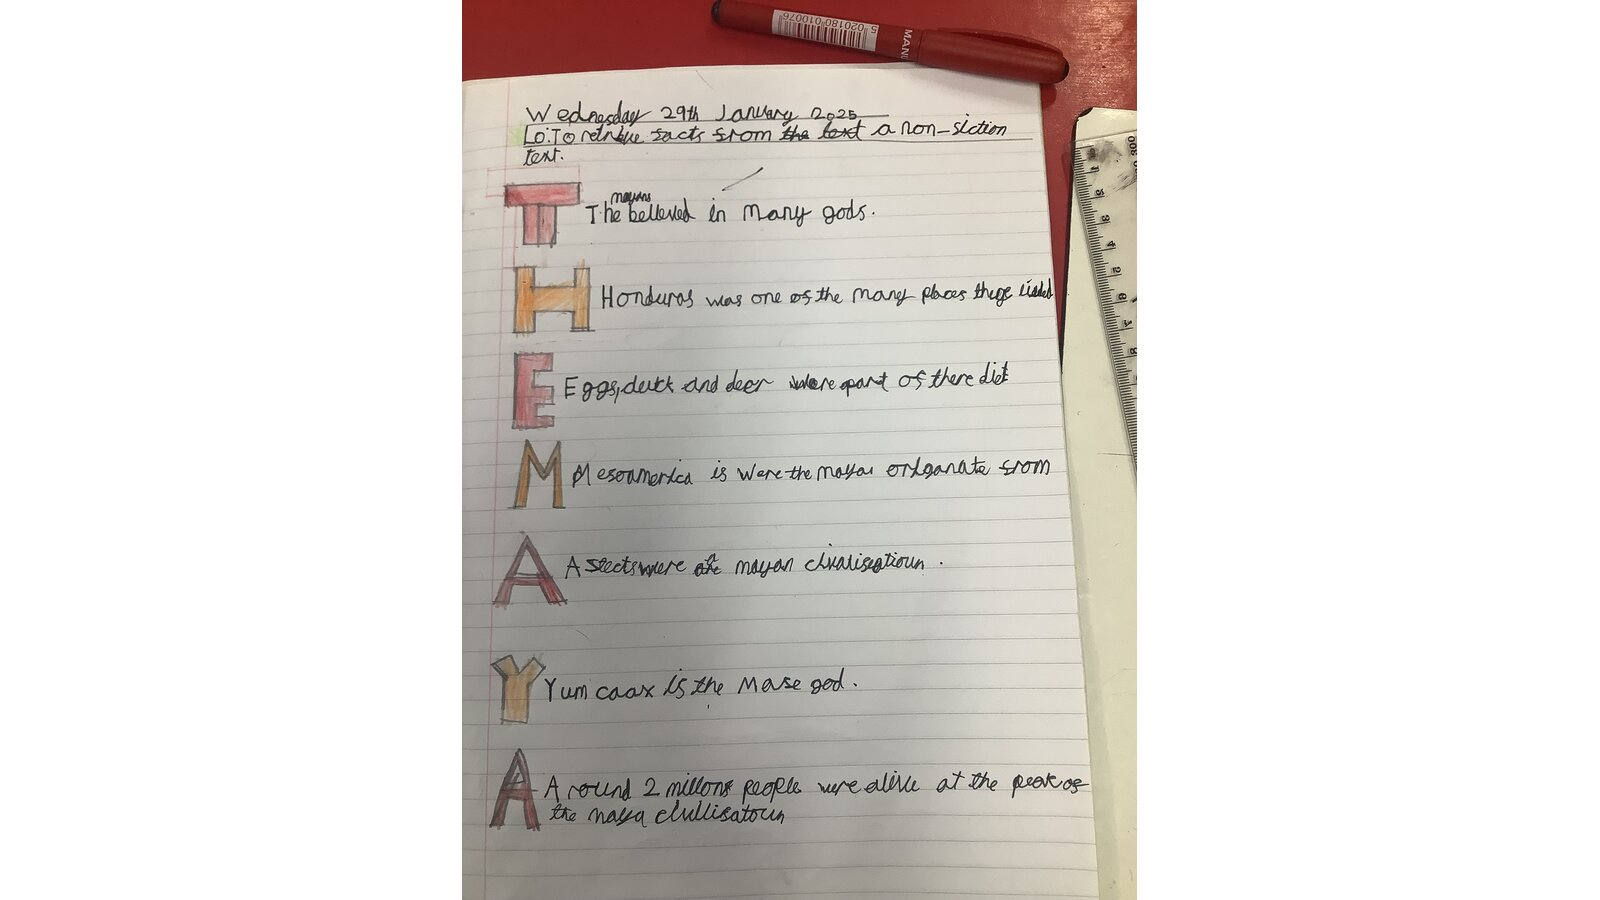 5 020180 010076
MANU
Wednesday 29th January 2025
LO: To retrieve facts from the text a non-fiction
text.
T
mayans
The believed in many gods.
H
Honduras was one of the many places they lived
E
Eggs, duck and deer were part of there diet
M
Mesoamerica is were the maya from
A
were mayan
Y
Yum caax is the Mase god.
A
Around 2 people were alive at the peak of
the maya